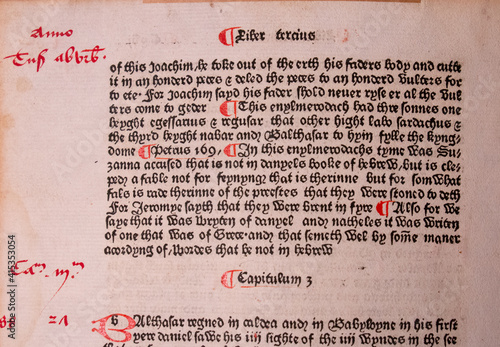 Anno
¶Liber tercius
of this Joachim, he toke out of the erth his faders body and cutte
it in an honderd peces & deled the peces to an honderd vulters for
to ete. For Joachim sayd his fader shold neuer ryse er al the vul
ters come to geder ¶This enylmerodach had thre sonnes one
heyght egessarius & regusar that other hight labo sardachus &
the thyrd heyght nabar and Balthasar to hym fylle the kyng-
dome ¶Petrus 169, ¶In this enylmerodachs tyme was Su-
zanna accused that is not in danyels booke of hebrew, but is cle-
ped a fable not for feynyng that is therinne but for som what
fals is rade therinne of the preestes that they were stoned to deth
For Jeromye sayth that they were brent in fyre ¶Also for we
saye that it was wryten of danyel and natheles it was writen
of one that was of Grece and that semeth wel by some maner
acordyng of wordes that be not in hebrew
¶Capitulum 3
Balthasar regned in caldea and in Babylone in his first
yere daniel sawe his iii sighte of the iiii wyndes in the see
415353054
Adobe Stock